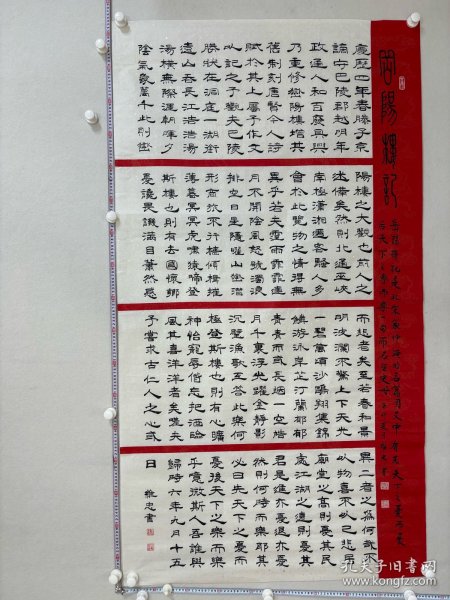 岳陽樓記
慶歷四年春滕子京
謫守巴陵郡越明年
政通人和百廢具興
乃重修嶽陽樓增其
舊制刻唐賢今人詩
賦於其上屬予作文
以記之予觀夫巴陵
勝狀在洞庭一湖銜
遠山吞長江浩浩湯
湯橫無際涯朝暉夕
陰氣象萬千此則嶽
陽樓之大觀也前人之
述備矣然則北通巫峽
南極瀟湘遷客騷人多
會於此覽物之情得無
異乎若夫霪雨霏霏連
月不開陰風怒號濁浪
排空日星隱曜山岳潛
形商旅不行檣傾楫摧
薄暮冥冥虎嘯猿啼登
斯樓也則有去國懷鄉
憂讒畏譏滿目蕭然感
而悲者矣至若春和景
明波瀾不驚上下天光
一碧萬頃沙鷗翔集錦
鱗游泳岸芷汀蘭郁郁
青青而或長煙一空皓
月千里浮光躍金靜影
沉璧漁歌互答此樂何
極登斯樓也則有心曠
神怡寵辱偕忘把酒臨
風其喜洋洋者矣嗟夫
予嘗求古仁人之心或
異二者之為何哉不
以物喜不以己悲居
廟堂之高則憂其民
處江湖之遠則憂其
君是進亦憂退亦憂
然則何時而樂耶其
必曰先天下之憂而
憂後天下之樂而樂
乎噫微斯人吾誰與
歸時六年九月十五
日 雅忠書
孔夫子旧书网